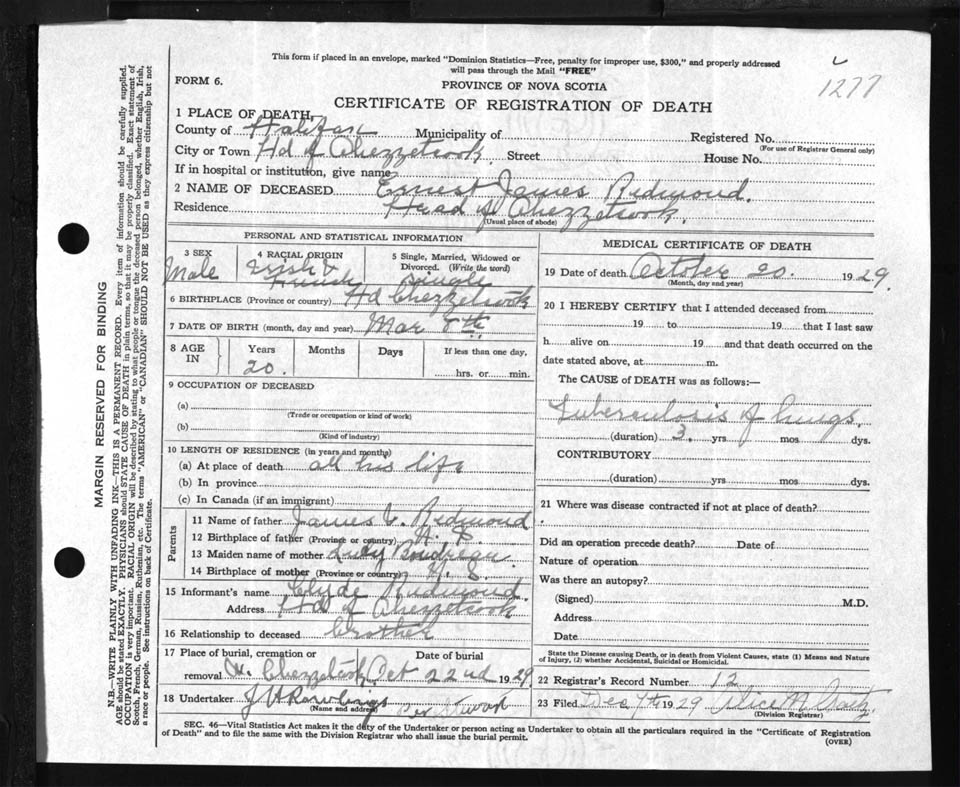 This form if placed in an envelope, marked "Dominion Statistics—Free, penalty for improper use, $300," and properly addressed
will pass through the Mail "FREE"
1277
FORM 6.
PROVINCE OF NOVA SCOTIA
CERTIFICATE OF REGISTRATION OF DEATH
1 PLACE OF DEATH,
County of Halifax Municipality of Registered No.
(For use of Registrar General only)
City or Town Hd of Chezzetcook, Street House No.
If in hospital or institution, give name
2 NAME OF DECEASED Ernest James Redmond.
Residence Head of Chezzetcook.
(Usual place of abode)
PERSONAL AND STATISTICAL INFORMATION
3 SEX Male
4 RACIAL ORIGIN Irish & French
5 Single, Married, Widowed or Divorced. (Write the word) Single
6 BIRTHPLACE (Province or country) Hd Chezzetcook
7 DATE OF BIRTH (month, day and year) Mar 8th.
8 AGE IN Years 20. Months Days If less than one day, hrs. or min.
9 OCCUPATION OF DECEASED
(a)
(Trade or occupation or kind of work)
(b)
(Kind of industry)
10 LENGTH OF RESIDENCE (in years and months)
(a) At place of death all his life
(b) In province
(c) In Canada (if an immigrant)
Parents
11 Name of father James Redmond
12 Birthplace of father (Province or country) N. S.
13 Maiden name of mother Boudreau
14 Birthplace of mother (Province or country) N. S.
15 Informant's name Clyde Redmond.
Address Hd of Chezzetcook
16 Relationship to deceased brother
17 Place of burial, cremation or removal Chezzetcook
Date of burial Oct 22nd 1929
18 Undertaker Rawlings
(Name and address)
MEDICAL CERTIFICATE OF DEATH
19 Date of death October 20. 1929.
(Month, day and year)
20 I HEREBY CERTIFY that I attended deceased from
19 to 19 that I last saw
h alive on 19 and that death occurred on the
date stated above, at m.
The CAUSE of DEATH was as follows:—
Tuberculosis of lungs.
(duration) 3. yrs mos dys.
CONTRIBUTORY
(duration) yrs mos dys.
21 Where was disease contracted if not at place of death?
Did an operation precede death? Date of
Nature of operation
Was there an autopsy?
(Signed) M.D.
Address
Date
State the Disease causing Death, or in death from Violent Causes, state (1) Means and Nature
of Injury, (2) whether Accidental, Suicidal or Homicidal.
22 Registrar's Record Number 12
23 Filed Dec 7th 1929 Alice M.
(Division Registrar)
SEC. 46—Vital Statistics Act makes it the duty of the Undertaker or person acting as Undertaker to obtain all the particulars required in the "Certificate of Registration
of Death" and to file the same with the Division Registrar who shall issue the burial permit.
(OVER)
MARGIN RESERVED FOR BINDING
N.B.—WRITE PLAINLY WITH UNFADING INK—THIS IS A PERMANENT RECORD. Every item of information should be carefully supplied.
AGE should be stated EXACTLY. PHYSICIANS should STATE CAUSE OF DEATH in plain terms, so that it may be properly classified. Exact statement of
OCCUPATION is very important. RACIAL ORIGIN will be described by stating to what people or tongue the deceased person belonged, whether English, Irish,
Scotch, French, German, Russian, Ruthenian, etc. The terms "AMERICAN" or "CANADIAN" SHOULD NOT BE USED as they express citizenship but not
a race or people. See instructions on back of Certificate.